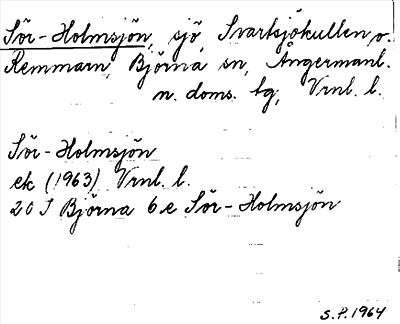 Sör-Holmsjön, sjö, Svartsjökullen o.
Remmarn, Björna sn, Ångermanl.
n. doms. tg, Vrnl. l.
Sör-Holmsjön
ek (1963) Vrnl. l.
20 J Björna 6 e Sör-Holmsjön
S.P. 1964